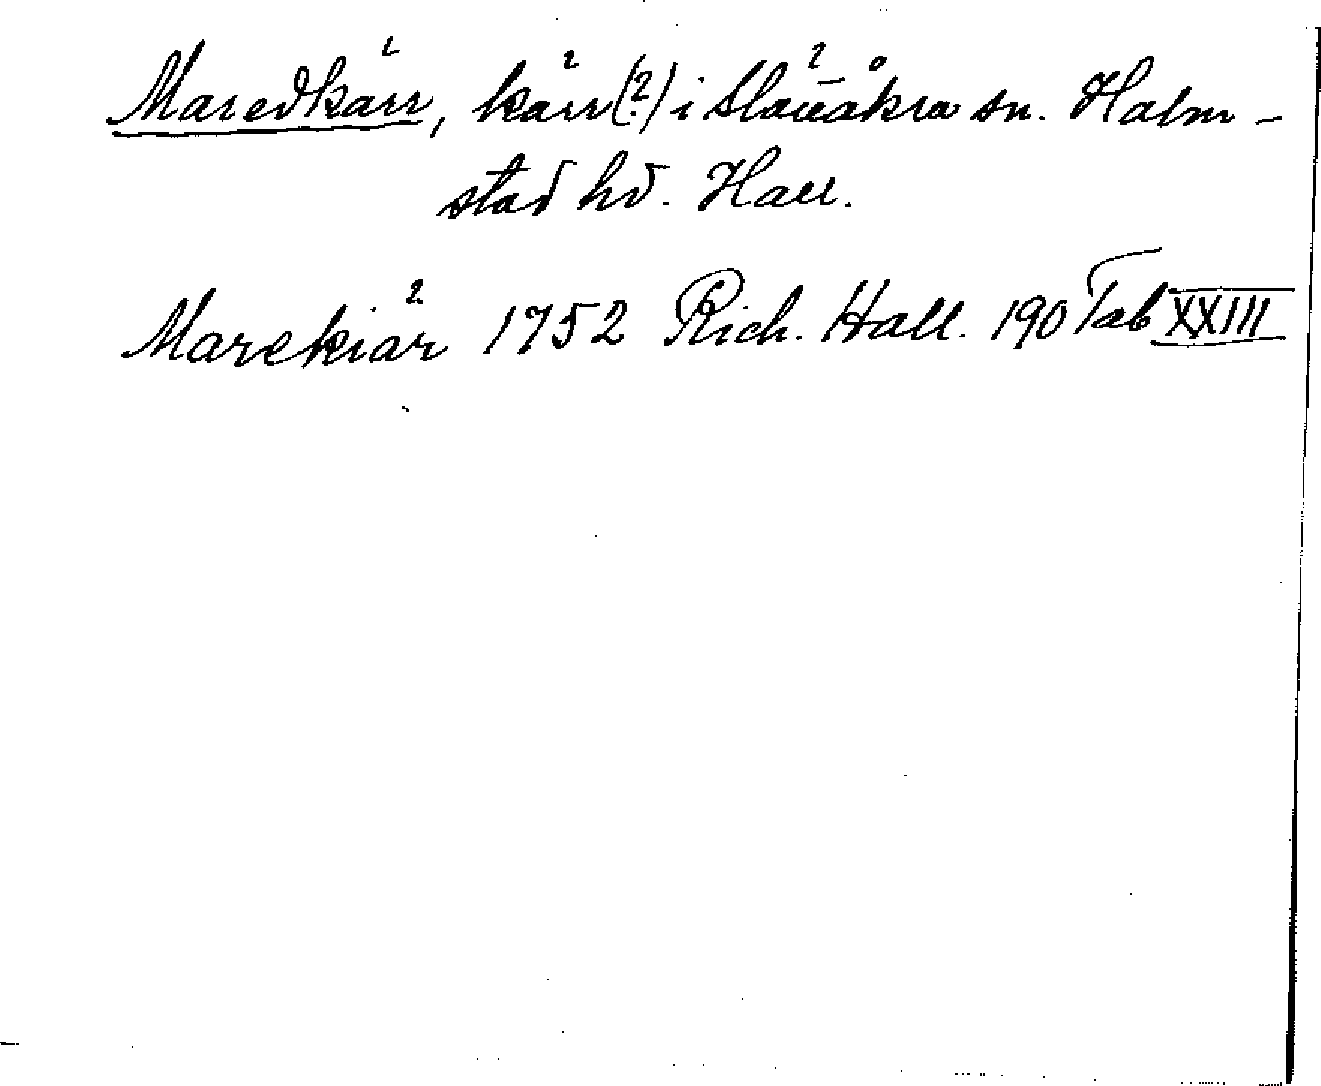 Maredkärr, kärr(?) i Slättåkra sn. Halm-
stad hd. Hall.
Marekiär 1752 Rich. Hall. 190 Tab XXIII